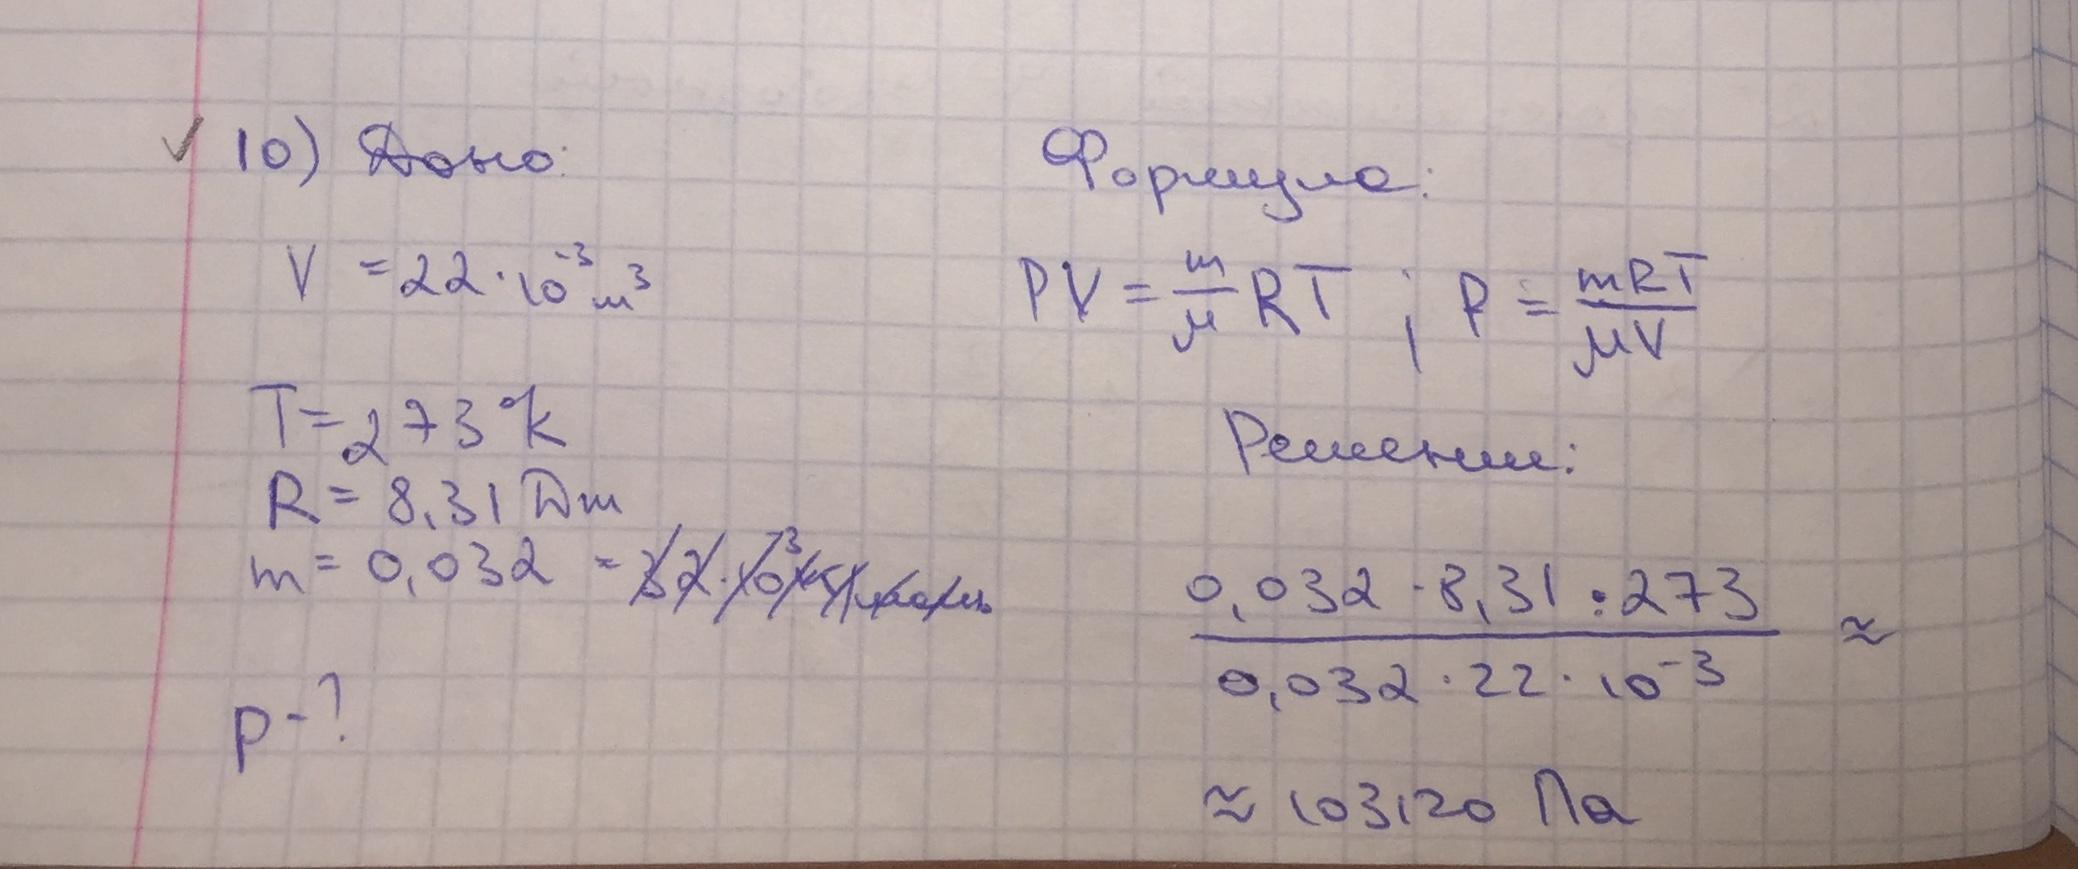 ✓ 10) Дано:
V = 22 · 10⁻³ м³
T = 273 °K
R = 8,31 Дж
m = 0,032 =
p - ?
Формула:
PV = m/μ RT ; P = mRT/μV
Решение:
0,032 · 8,31 · 273 / 0,032 · 22 · 10⁻³ ≈
≈ 103120 Па